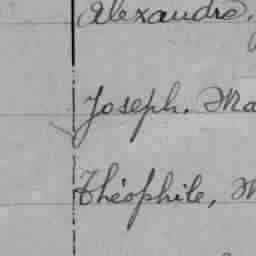 Alexandre,
Joseph. Ma
Théophile, M